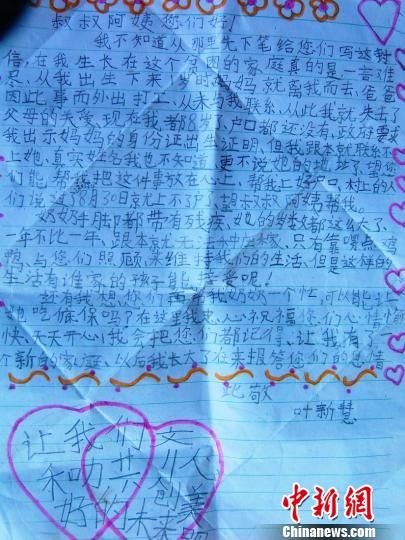 叔叔阿姨您们好！
我不知道从那里先下笔给您们写这封
信，在我生长在这个贫困的家庭真的是一言难
尽，从我出生下来1岁时妈妈就离我而去，爸爸
因此事而外出打工，从未与我联系，从此我就失去了
父母的关爱，现在我都8岁，户口都还没有，政府要求
我出示妈妈的身份证出生证明，但我跟本就联系不
上她，真实姓名我也不知道，更不说她的地址了，望你
们能帮我把这件事放在心上，帮我上好户口，村上的人
们说过8月30日就上不了户，望叔叔阿姨帮我。
奶奶手脚都带有残疾，她的岁数都这么大了，
一年不比一年，跟本就无法种庄稼，只有靠喂点鸡
鸭与您们照顾，来维持我们的生活，但是这样的
生活有谁家的孩子能接受呢！
还有我想，您们再帮我奶奶一个忙，可以能上
她吃低保吗？在这里我忠心祝福你们心情愉
快，天天开心！我会把您们都记得，让我有了一
个新的家庭，以后我长大了在来报答您们的恩情
此敬
叶新慧
让我们
共
和
好的未来
文
人
创
美
中新网
Chinanews.com